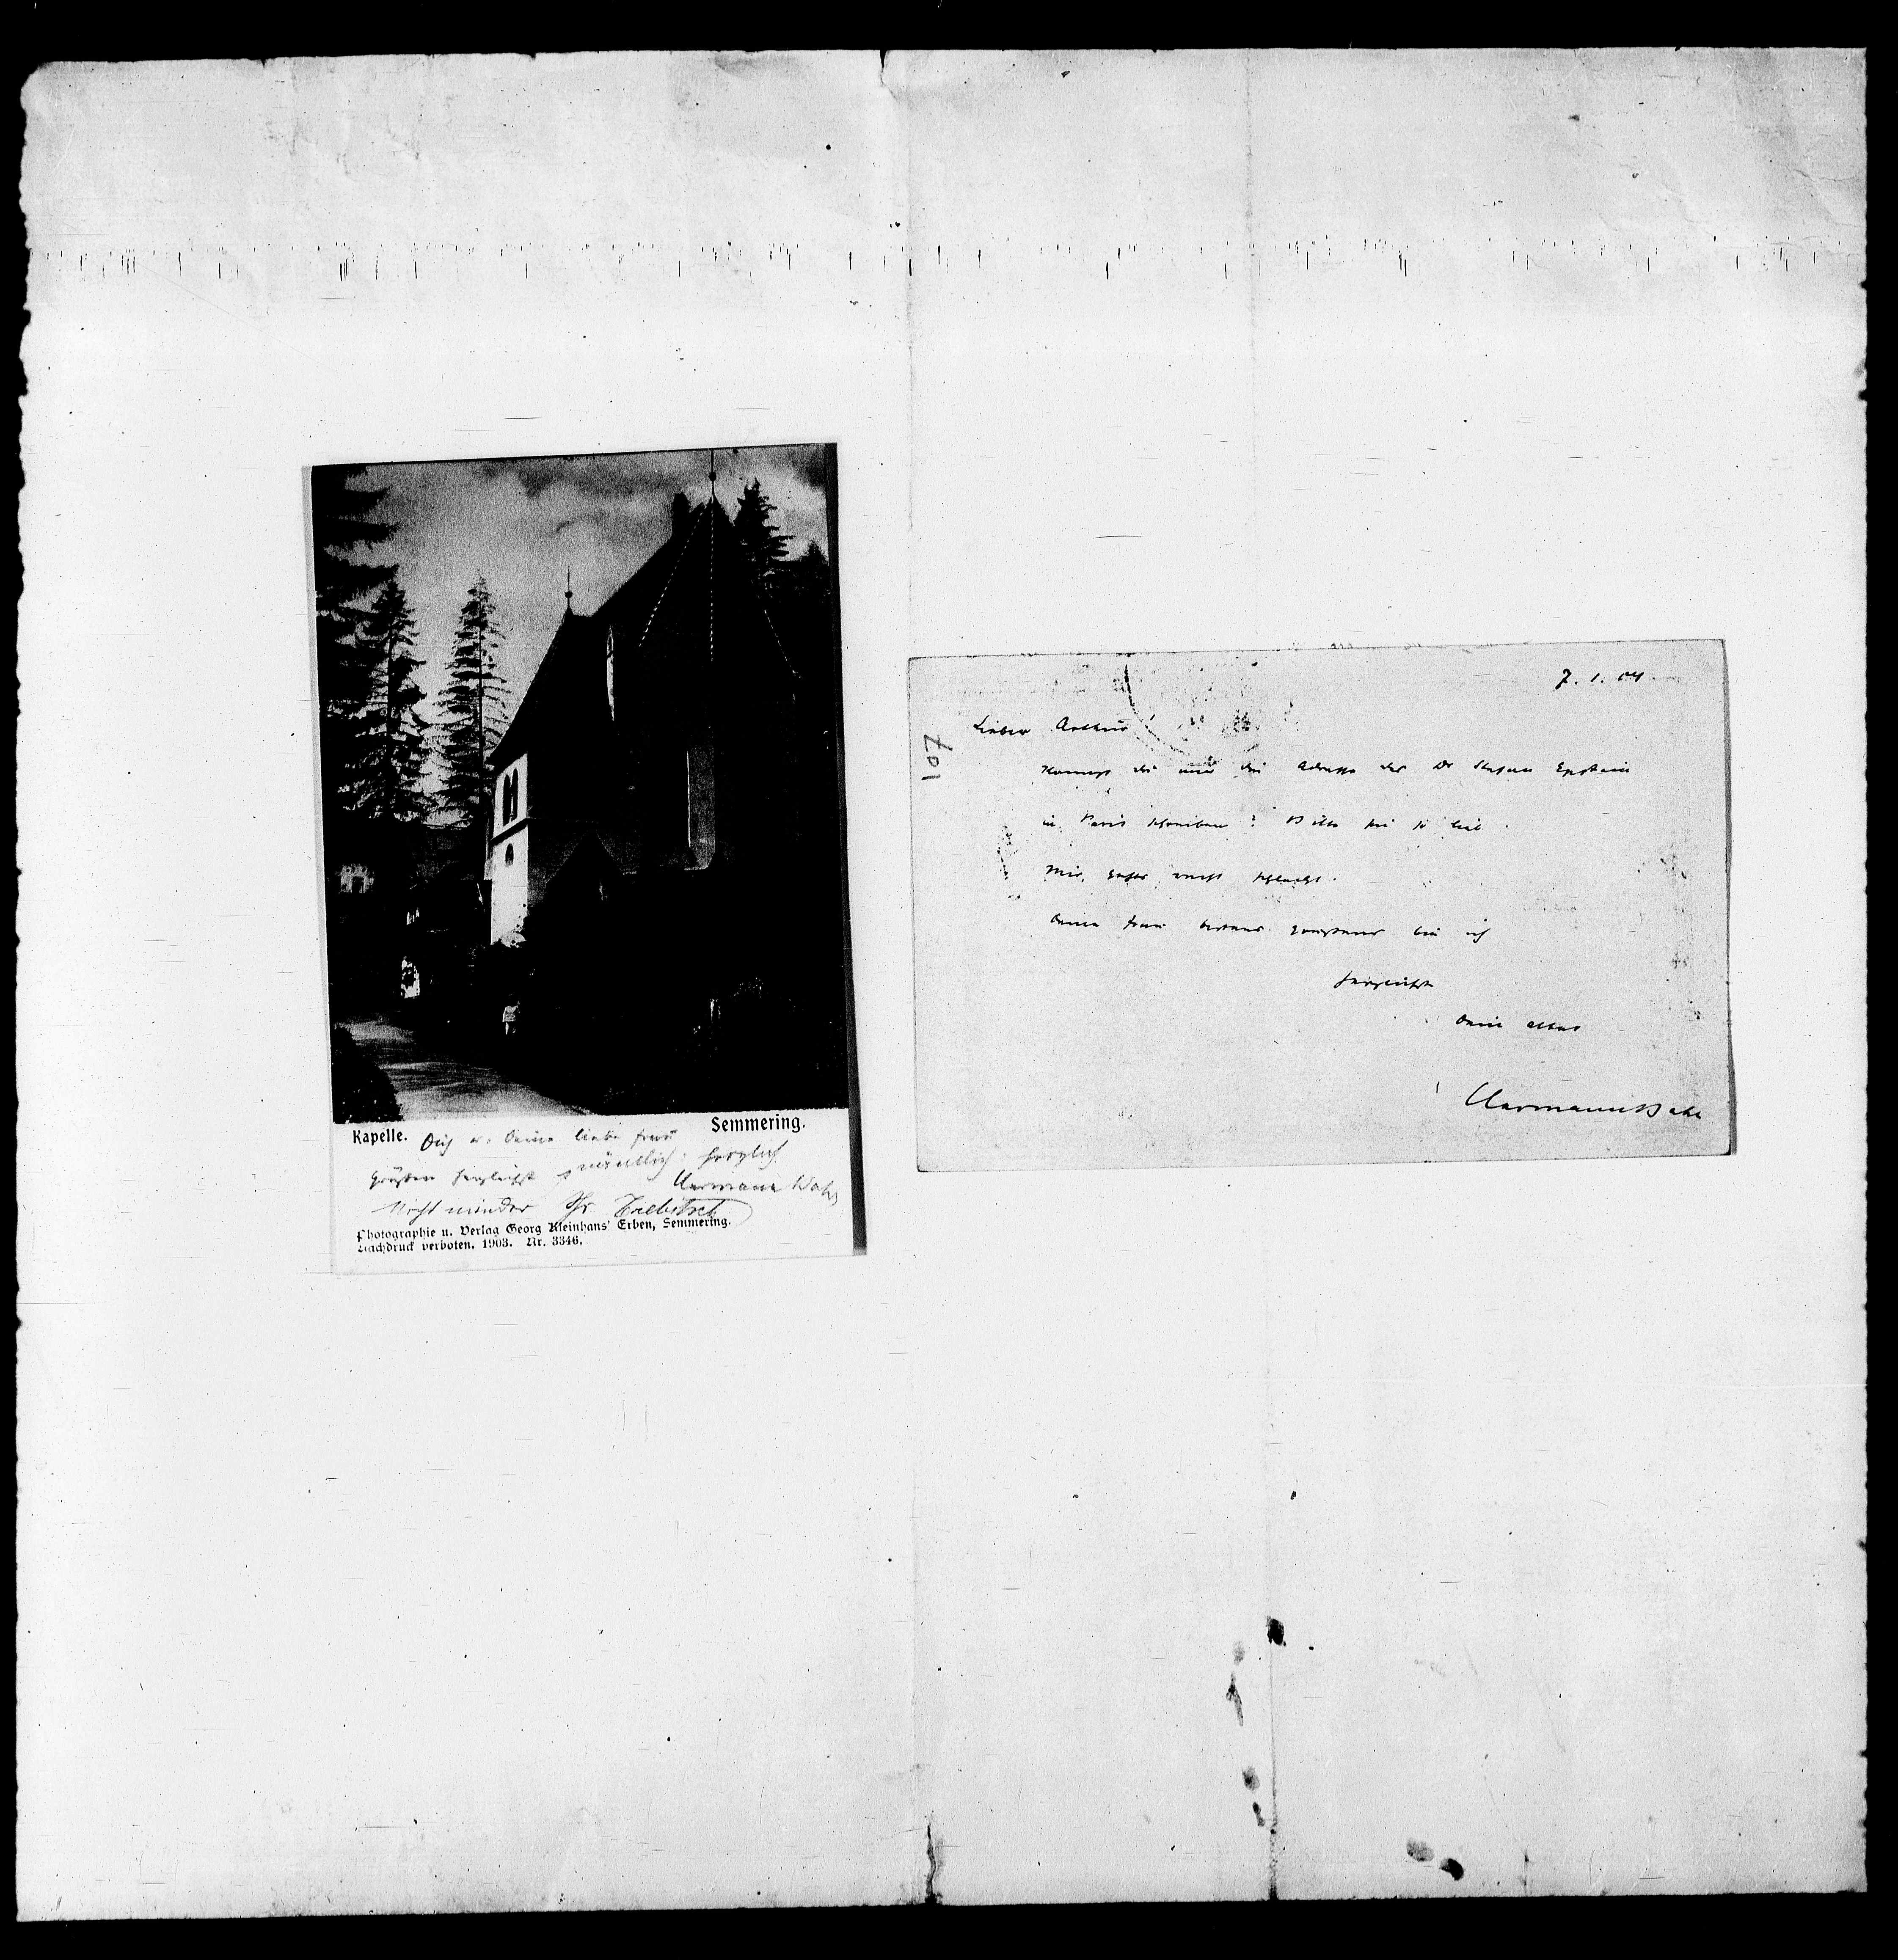 Kapelle. Semmering.
Dich u. Deine liebe Frau
grüßen herzlichst herzlich
Hermann Bahr
Nicht minder Ihr Trebitsch
Photographie u. Verlag Georg Kleinhans' Erben, Semmering.
Nachdruck verboten. 1903. Nr. 3346.
107
7. 1. 04
Lieber Arthur!
Kannst du mir die Adresse des Dr Stefan Epstein
in Paris schreiben? Bitte sei so lieb.
Mir geht's nicht schlecht.
Deine Frau bestens grüßend bin ich
herzlichst
Dein alter
Hermann Bahr